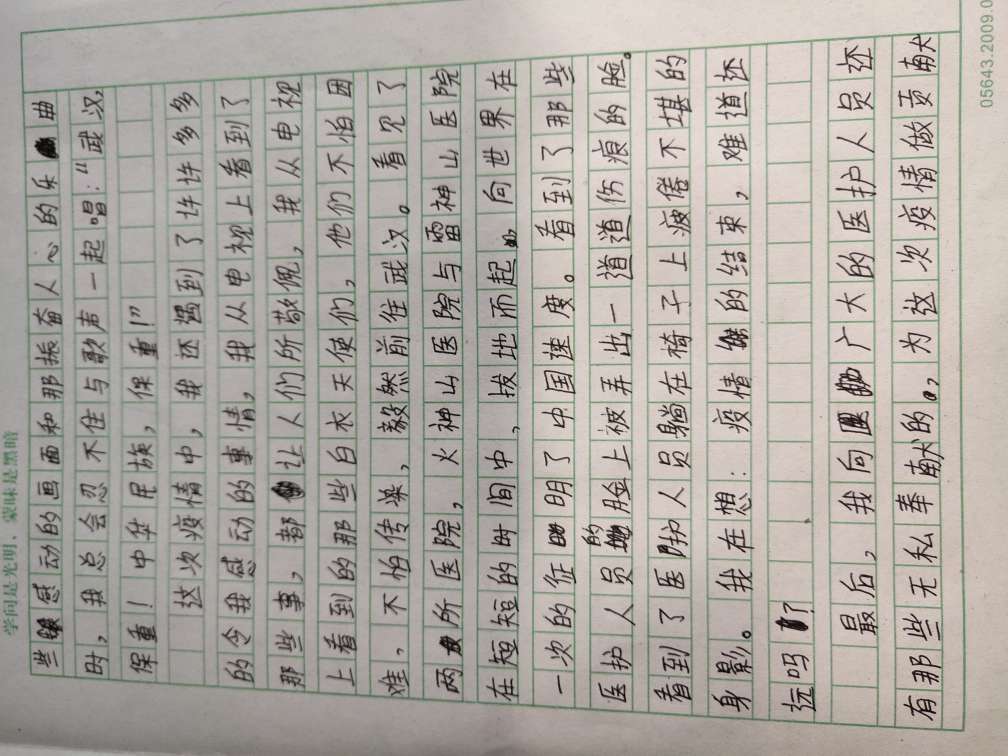 学问是光明，蒙昧是黑暗
些感动的画面和那振奋人心的乐曲
时，我总会忍不住与歌声一起唱：“武汉，
保重！中华民族，保重！”
这次疫情中，我还遇到了许许多多
的令我感动的事情，我从电视上看到了
那些事，都让人们所敬佩，我从电视
上看到的那些白衣天使们，他们不怕困
难，不怕传染，毅然前往武汉。看见了
两所医院，火神山医院与雷神山医院
在短短的时间中，拔地而起，向世界在
一次的证明了中国速度。看到了那些
医护人员的脸上被弄出一道道伤痕的脸。
看到了医护人员躺在椅子上疲倦不堪的
身影。我在想：疫情的结束，难道还
远吗？
最后，我向广大的医护人员还
有那些无私奉献的。，为这次疫情做贡献
05643.2009.0